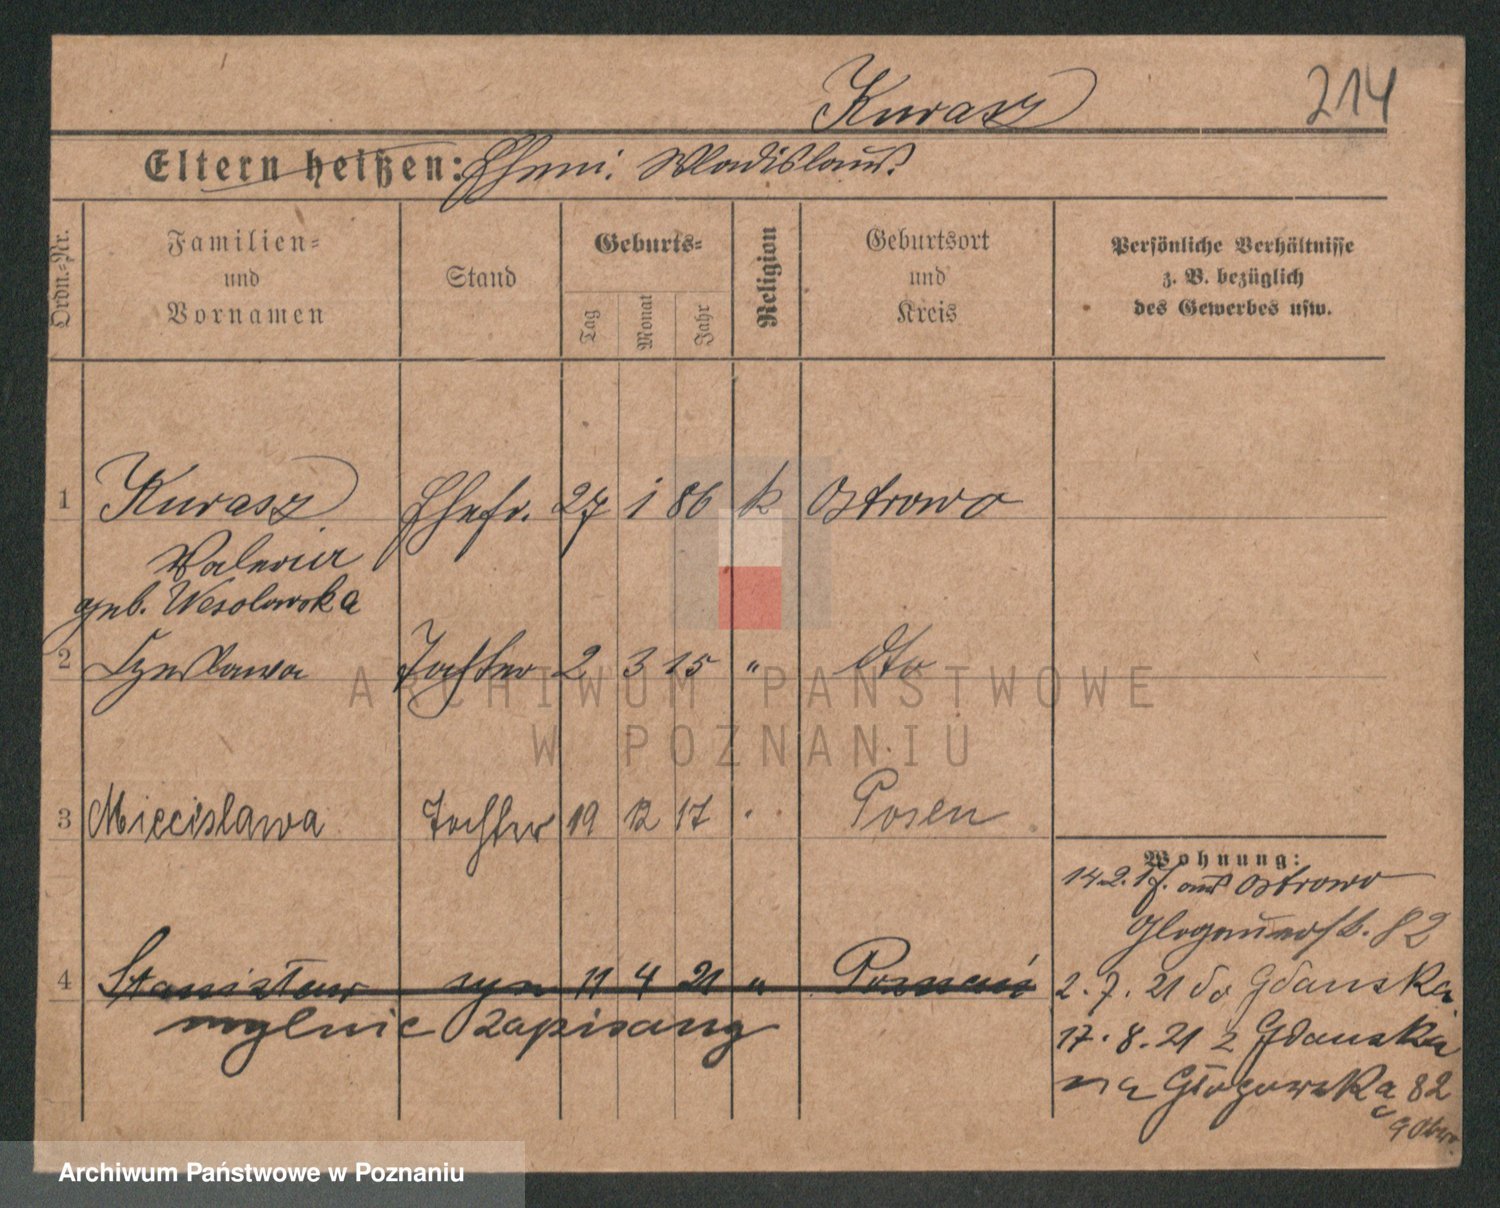 Kurasz 214
Eltern heißen: Ehem. Wladislaus.
Ordn.-Nr.
Familien-
und
Vornamen
Stand
Geburts-
Tag
Monat
Jahr
Religion
Geburtsort
und
Kreis
Persönliche Verhältnisse
z. B. bezüglich
des Gewerbes usw.
1 Kurasz Ehefr. 27 1 86 k Ostrowo
Valeria
geb. Wesolowska
2 Czeslawa Tochter 2 3 15 " dto
ARCHIWUM PAŃSTWOWE
W POZNANIU
3 Miecislawa Tochter 19 12 17 " Posen
Wohnung:
14.2.17. aus Ostrowo
Glogauerstr. 82
4 Stanisław syn 11 4 21 " Poznań
mylnie zapisany
2.7.21 do Gdańska
17.8.21 z Gdańska
na Głogowska 82
Archiwum Państwowe w Poznaniu